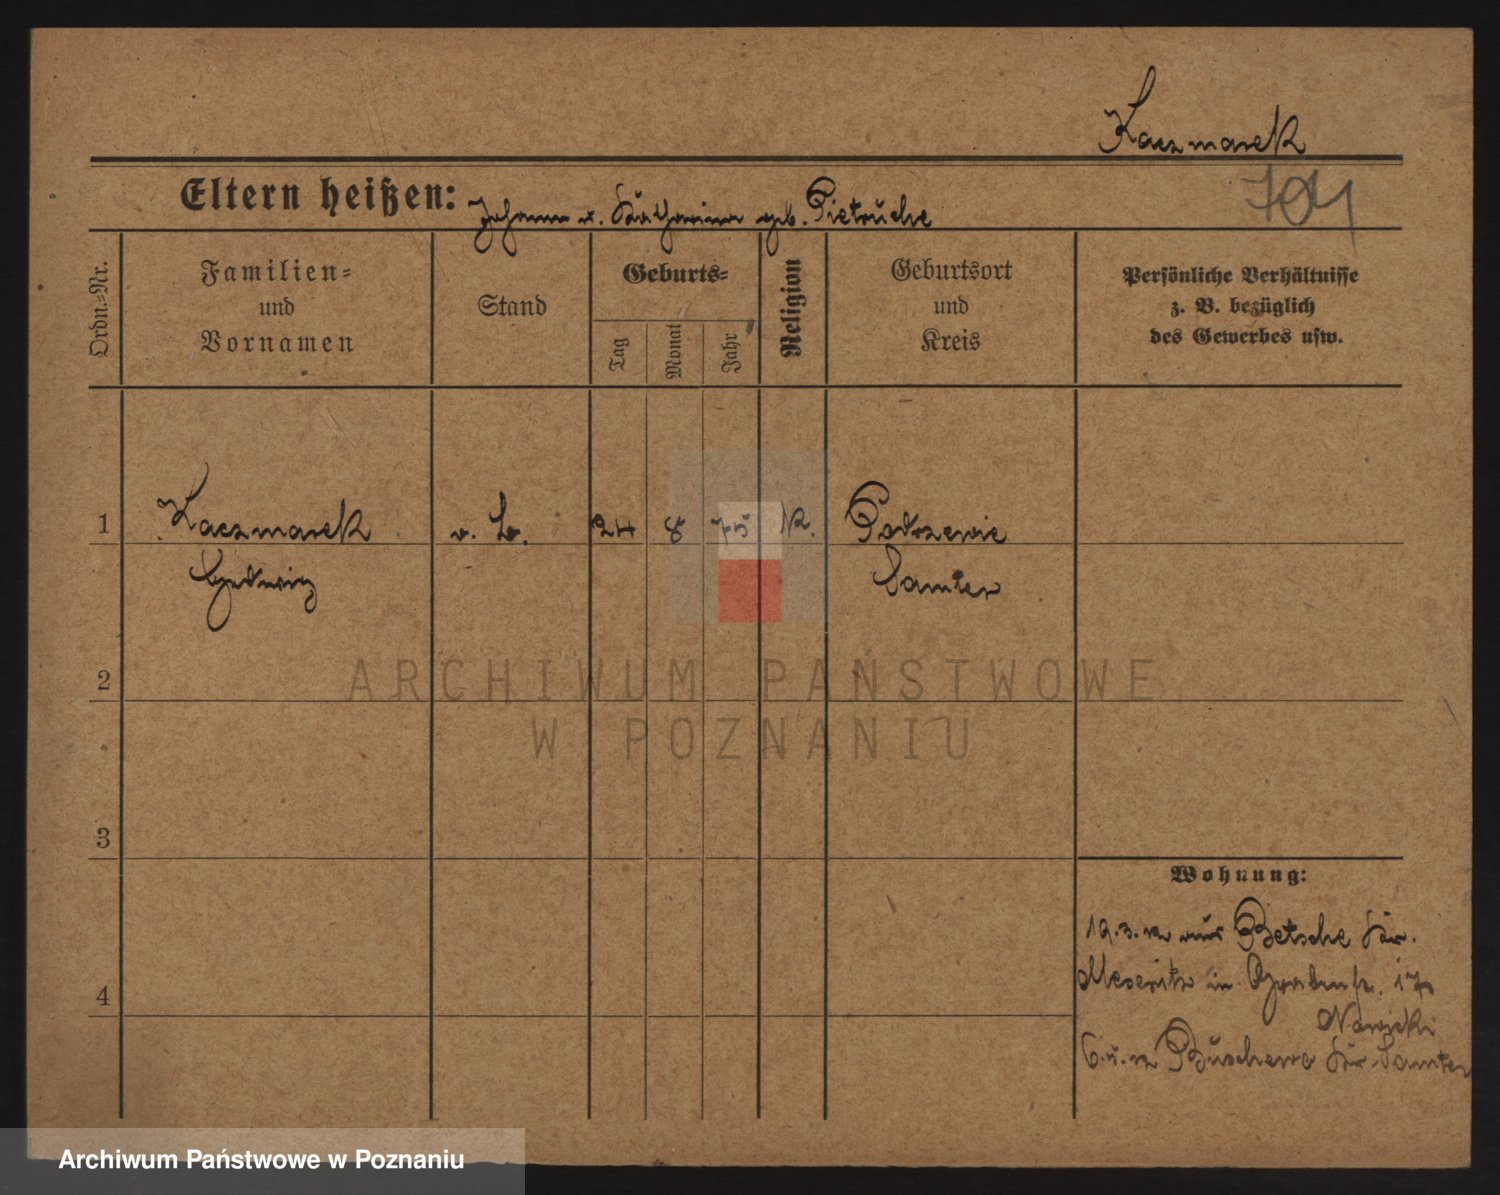 Kaczmarek
Eltern heißen: Johann u. Katharina geb. Pietruche
704
Ordn.-Nr.
Familien-
und
Vornamen
Stand
Geburts-
Tag
Monat
Jahr
Religion
Geburtsort
und
Kreis
Persönliche Verhältnisse
z. B. bezüglich
des Gewerbes usw.
1 Kaczmarek 24 8 75 K. Podrzewie
Hedwig Samter
2
3
4
ARCHIWUM PAŃSTWOWE
W POZNANIU
Wohnung:
19.3. aus Betsche Kr.
Meseritz in Grabenstr. 17
Nowicki
Buschewo Kr. Samter
Archiwum Państwowe w Poznaniu